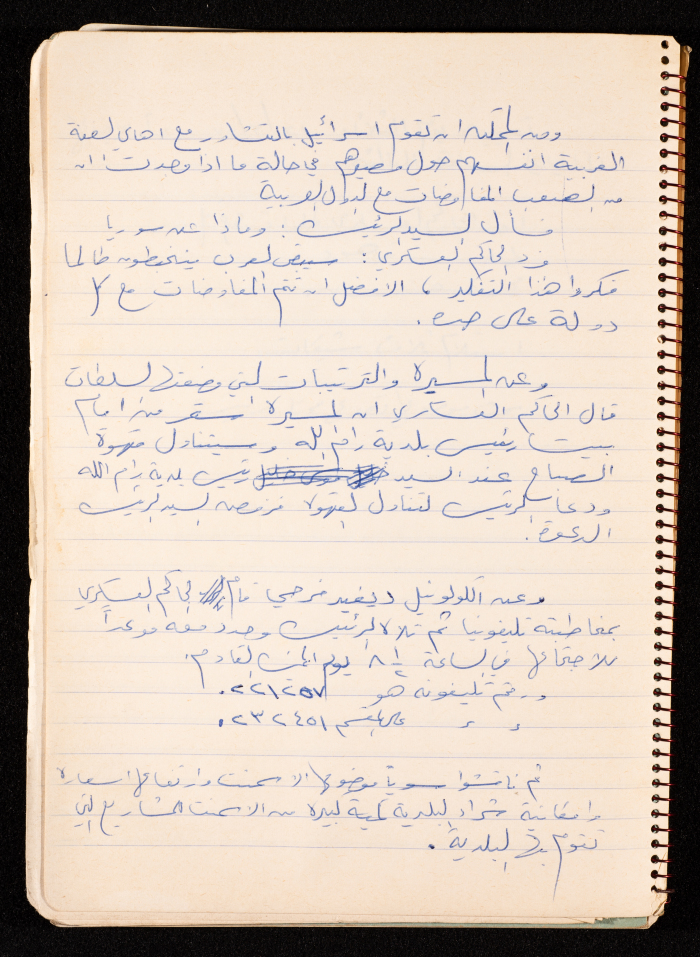 ومن المحتمل ان تقوم اسرائيل بالتشاور مع اهالي الضفة
الغربية انفسهم حول مصيرهم في حالة ما اذا وجدت ان
من الصعب المفاوضات مع الدول العربية
فسأل السيد الرئيس : وماذا عن سوريا
فرد الحاكم العسكري : سيبقى العرب يتخبطون طالما
فكروا هذا التفكير ، الافضل ان تتم المفاوضات مع كل
دولة على حده .
وعن المسيرة والترتيبات التي وضعتها السلطات
قال الحاكم العسكري ان المسيرة ستمر من امام
بيت رئيس بلدية رام الله وسيتناول قهوة
الصباح عند السيد رئيس بلدية رام الله
ودعا الرئيس لتناول القهوة فرفض السيد الرئيس
الدعوة .
وعن الكولونيل ديفيد فرحي قام الحاكم العسكري
بمخاطبته تليفونيا ثم تلاه الرئيس وحدد معه موعداً
للاجتماع في الساعة ٨ ١/٢ يوم الخميس القادم .
ورقم تليفونه هو ٠٢٢١٢٥٧
" " على المقسم ٠٢٣٢٤٥١
ثم ناقشوا سوياً موضوع الاسمنت وارتفاع اسعاره
وامكانية شراء البلدية كمية كبيرة من الاسمنت للمشاريع التي
تقوم بها البلدية .